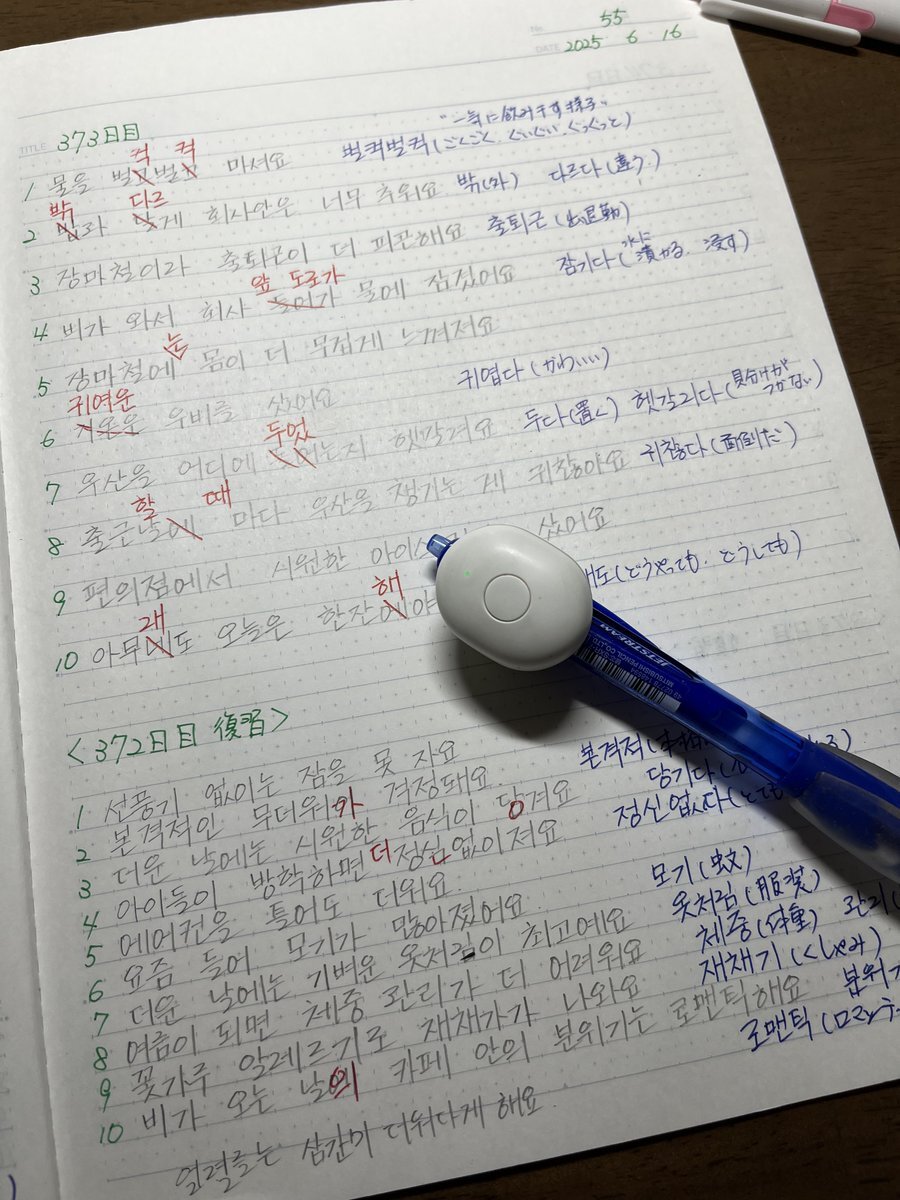 No. 55
DATE 2025 6 16
TITLE 373日目
"一気に飲み干す様子"
컥 컥
1 물을 벌벌 마셔요 벌컥벌컥(ごくごく、ぐいぐい、ぐっくっと)
밖 다르
2 과 게 회사안은 너무 추워요 밖(외) 다르다(違う)
3 장마철이라 출퇴근이 더 피곤해요 출퇴근(出退勤)
앞 도로가
4 비가 와서 회사 들어가 물에 잠겼어요 잠기다(水に漬かる、浸す)
는
5 장마철에 몸이 더 무겁게 느껴져요
귀여운
6 우비를 샀어요 귀엽다(かわいい)
두었
7 우산을 어디에 는지 헷갈려요 두다(置く) 헷갈리다(見分けがつかない)
할 때
8 출근날에 마다 우산을 챙기는 게 귀찮아요 귀찮다(面倒だ)
9 편의점에서 시원한 아이스 샀어요
래 해
10 아무도 오늘은 한잔야 래도(どうやっても、どうしても)
<372日目 復習>
1 선풍기 없이는 잠을 못 자요 본격적
2 본격적인 무더위가 걱정돼요 당기다
3 더운 날에는 시원한 음식이 당겨요 정신없다(とても
4 아이들이 방학하면 더 정신없이져요
5 에어컨을 틀어도 더워요 모기(蚊)
6 요즘 들어 모기가 많아졌어요 옷차림(服装)
7 더운 날에는 가벼운 옷차림이 최고예요 체중(体重) 관리
8 여름이 되면 체중 관리가 더 어려워요 재채기(くしゃみ)
9 꽃가루 알레르기로 재채기가 나와요 분위기
10 비가 오는 날의 카페 안의 분위기는 로맨틱해요 로맨틱(ロマンチ
JETSTREAM
MITSUBISHI PENCIL CO.,LTD.